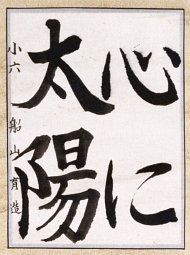 心に
太陽
小六 船山育造